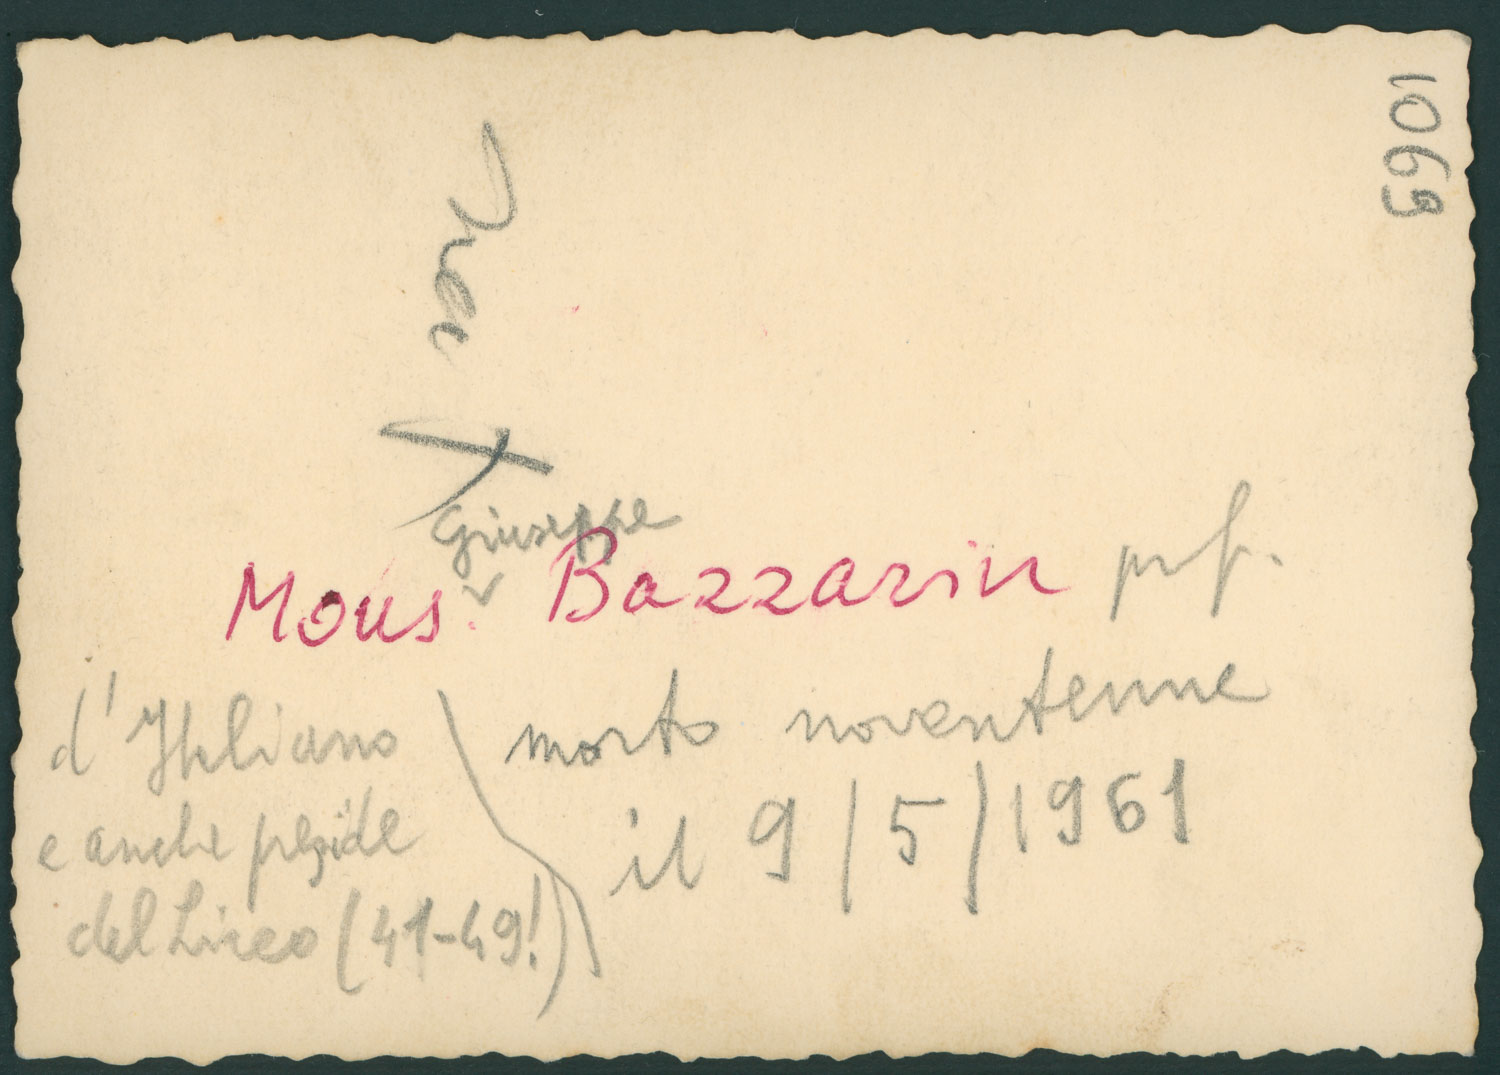 1069
Giuseppe
Mons. Bazzarin prof.
d'Italiano
e anche preside
del Liceo (41-49!)
morto noventenne
il 9/5/1961